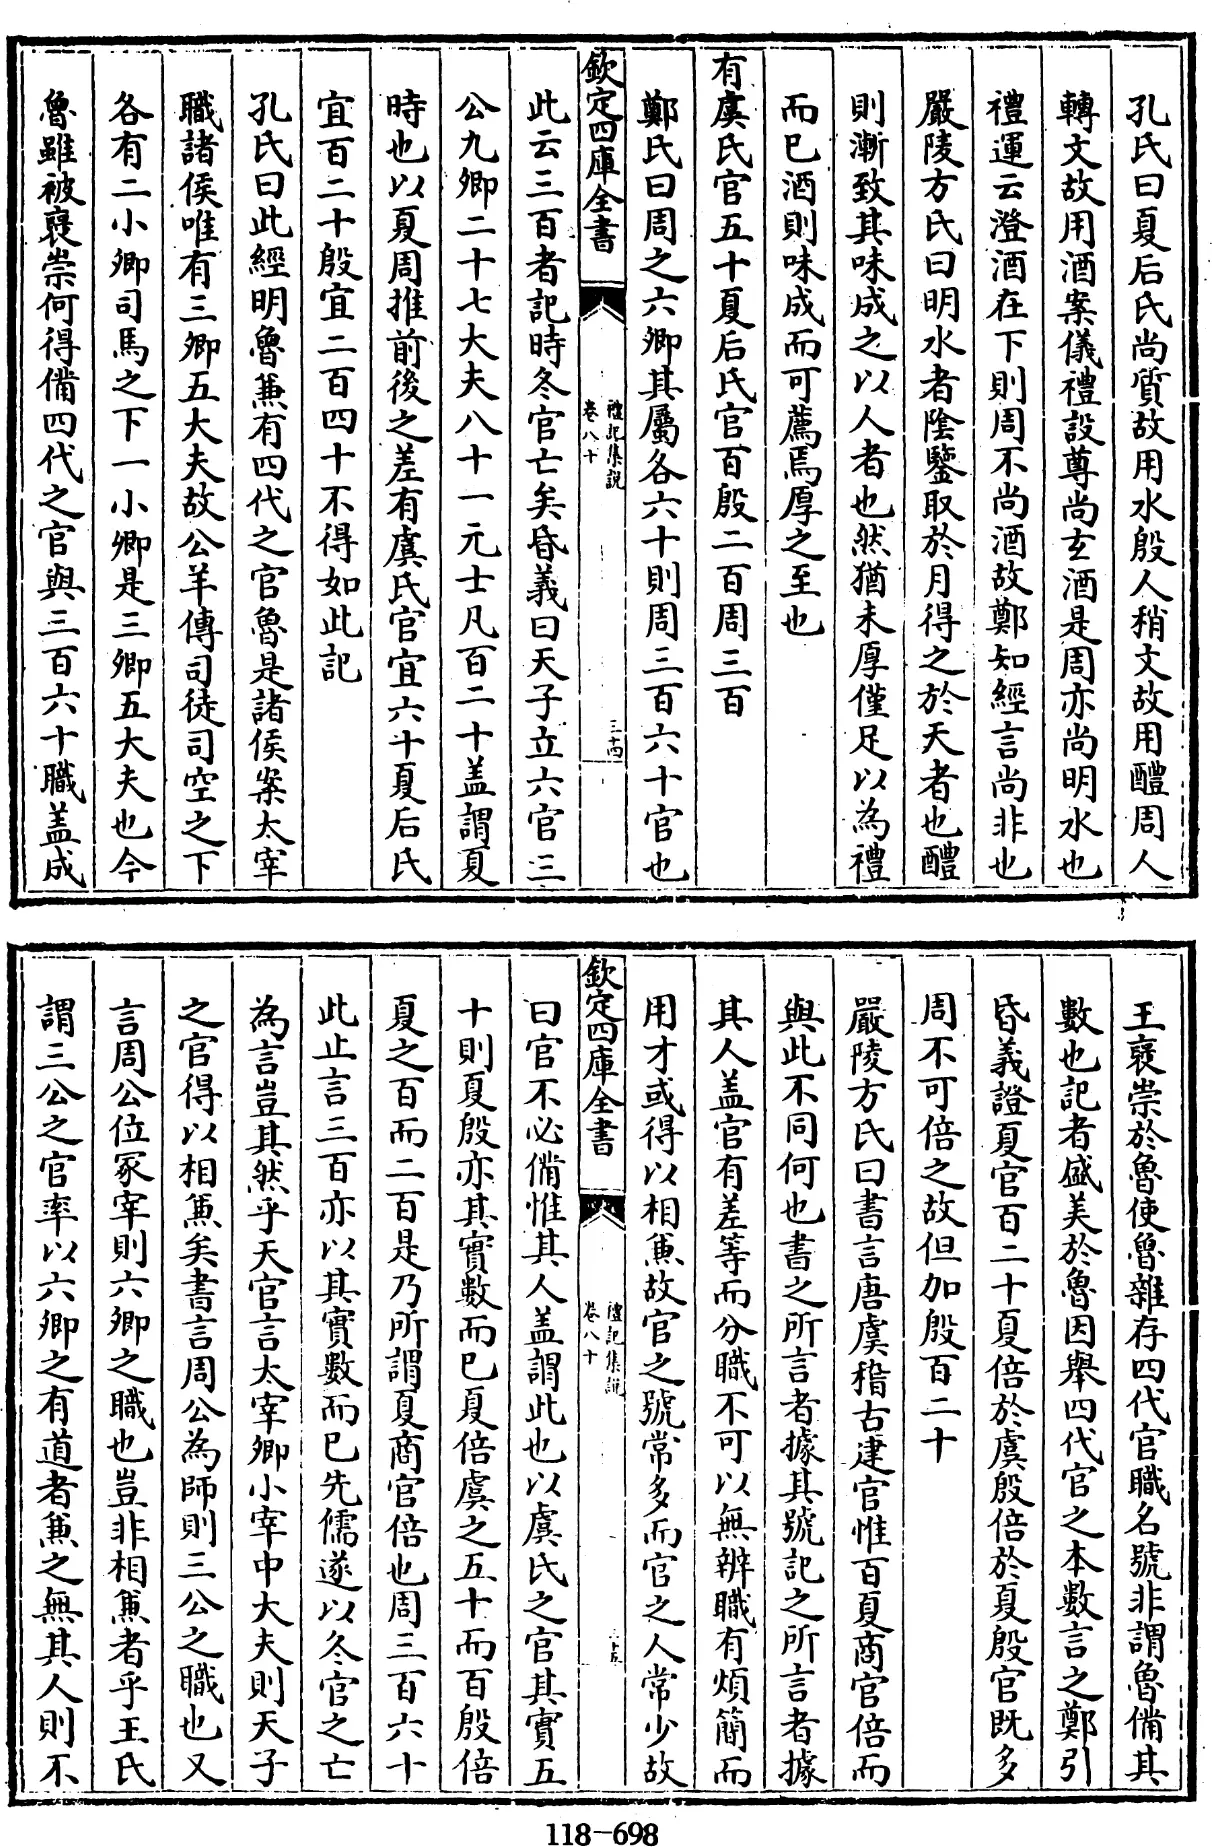 孔氏曰夏后氏尚質故用水殷人稍文故用醴周人
轉文故用酒案儀禮設尊尚玄酒是周亦尚明水也
禮運云澄酒在下則周不尚酒故鄭知經言尚非也
嚴陵方氏曰明水者陰鑒取於月得之於天者也醴
則漸致其味成之以人者也然猶未厚僅足以為禮
而已酒則味成而可薦焉厚之至也
有虞氏官五十夏后氏官百殷二百周三百
鄭氏曰周之六卿其屬各六十則周三百六十官也
欽定四庫全書
禮記集說
卷八十
三十四
此云三百者記時冬官亡矣昏義曰天子立六官三
公九卿二十七大夫八十一元士凡百二十蓋謂夏
時也以夏周推前後之差有虞氏官宜六十夏后氏
宜百二十殷宜二百四十不得如此記
孔氏曰此經明魯兼有四代之官魯是諸侯案太宰
職諸侯唯有三卿五大夫故公羊傳司徒司空之下
各有二小卿司馬之下一小卿是三卿五大夫也今
魯雖被襃崇何得備四代之官與三百六十職蓋成
王襃崇於魯使魯雜存四代官職名號非謂魯備其
數也記者盛美於魯因舉四代官之本數言之鄭引
昏義證夏官百二十夏倍於虞殷倍於夏殷官既多
周不可倍之故但加殷百二十
嚴陵方氏曰書言唐虞稽古建官惟百夏商官倍而
與此不同何也書之所言者據其號記之所言者據
其人蓋官有差等而分職不可以無辨職有煩簡而
用才或得以相兼故官之號常多而官之人常少故
欽定四庫全書
禮記集說
卷八十
三十五
曰官不必備惟其人蓋謂此也以虞氏之官其實五
十則夏殷亦其實數而已夏倍虞之五十而百殷倍
夏之百而二百是乃所謂夏商官倍也周三百六十
此止言三百亦以其實數而已先儒遂以冬官之亡
為言豈其然乎天官言太宰卿小宰中大夫則天子
之官得以相兼矣書言周公為師則三公之職也又
言周公位冢宰則六卿之職也豈非相兼者乎王氏
謂三公之官率以六卿之有道者兼之無其人則不
118-698